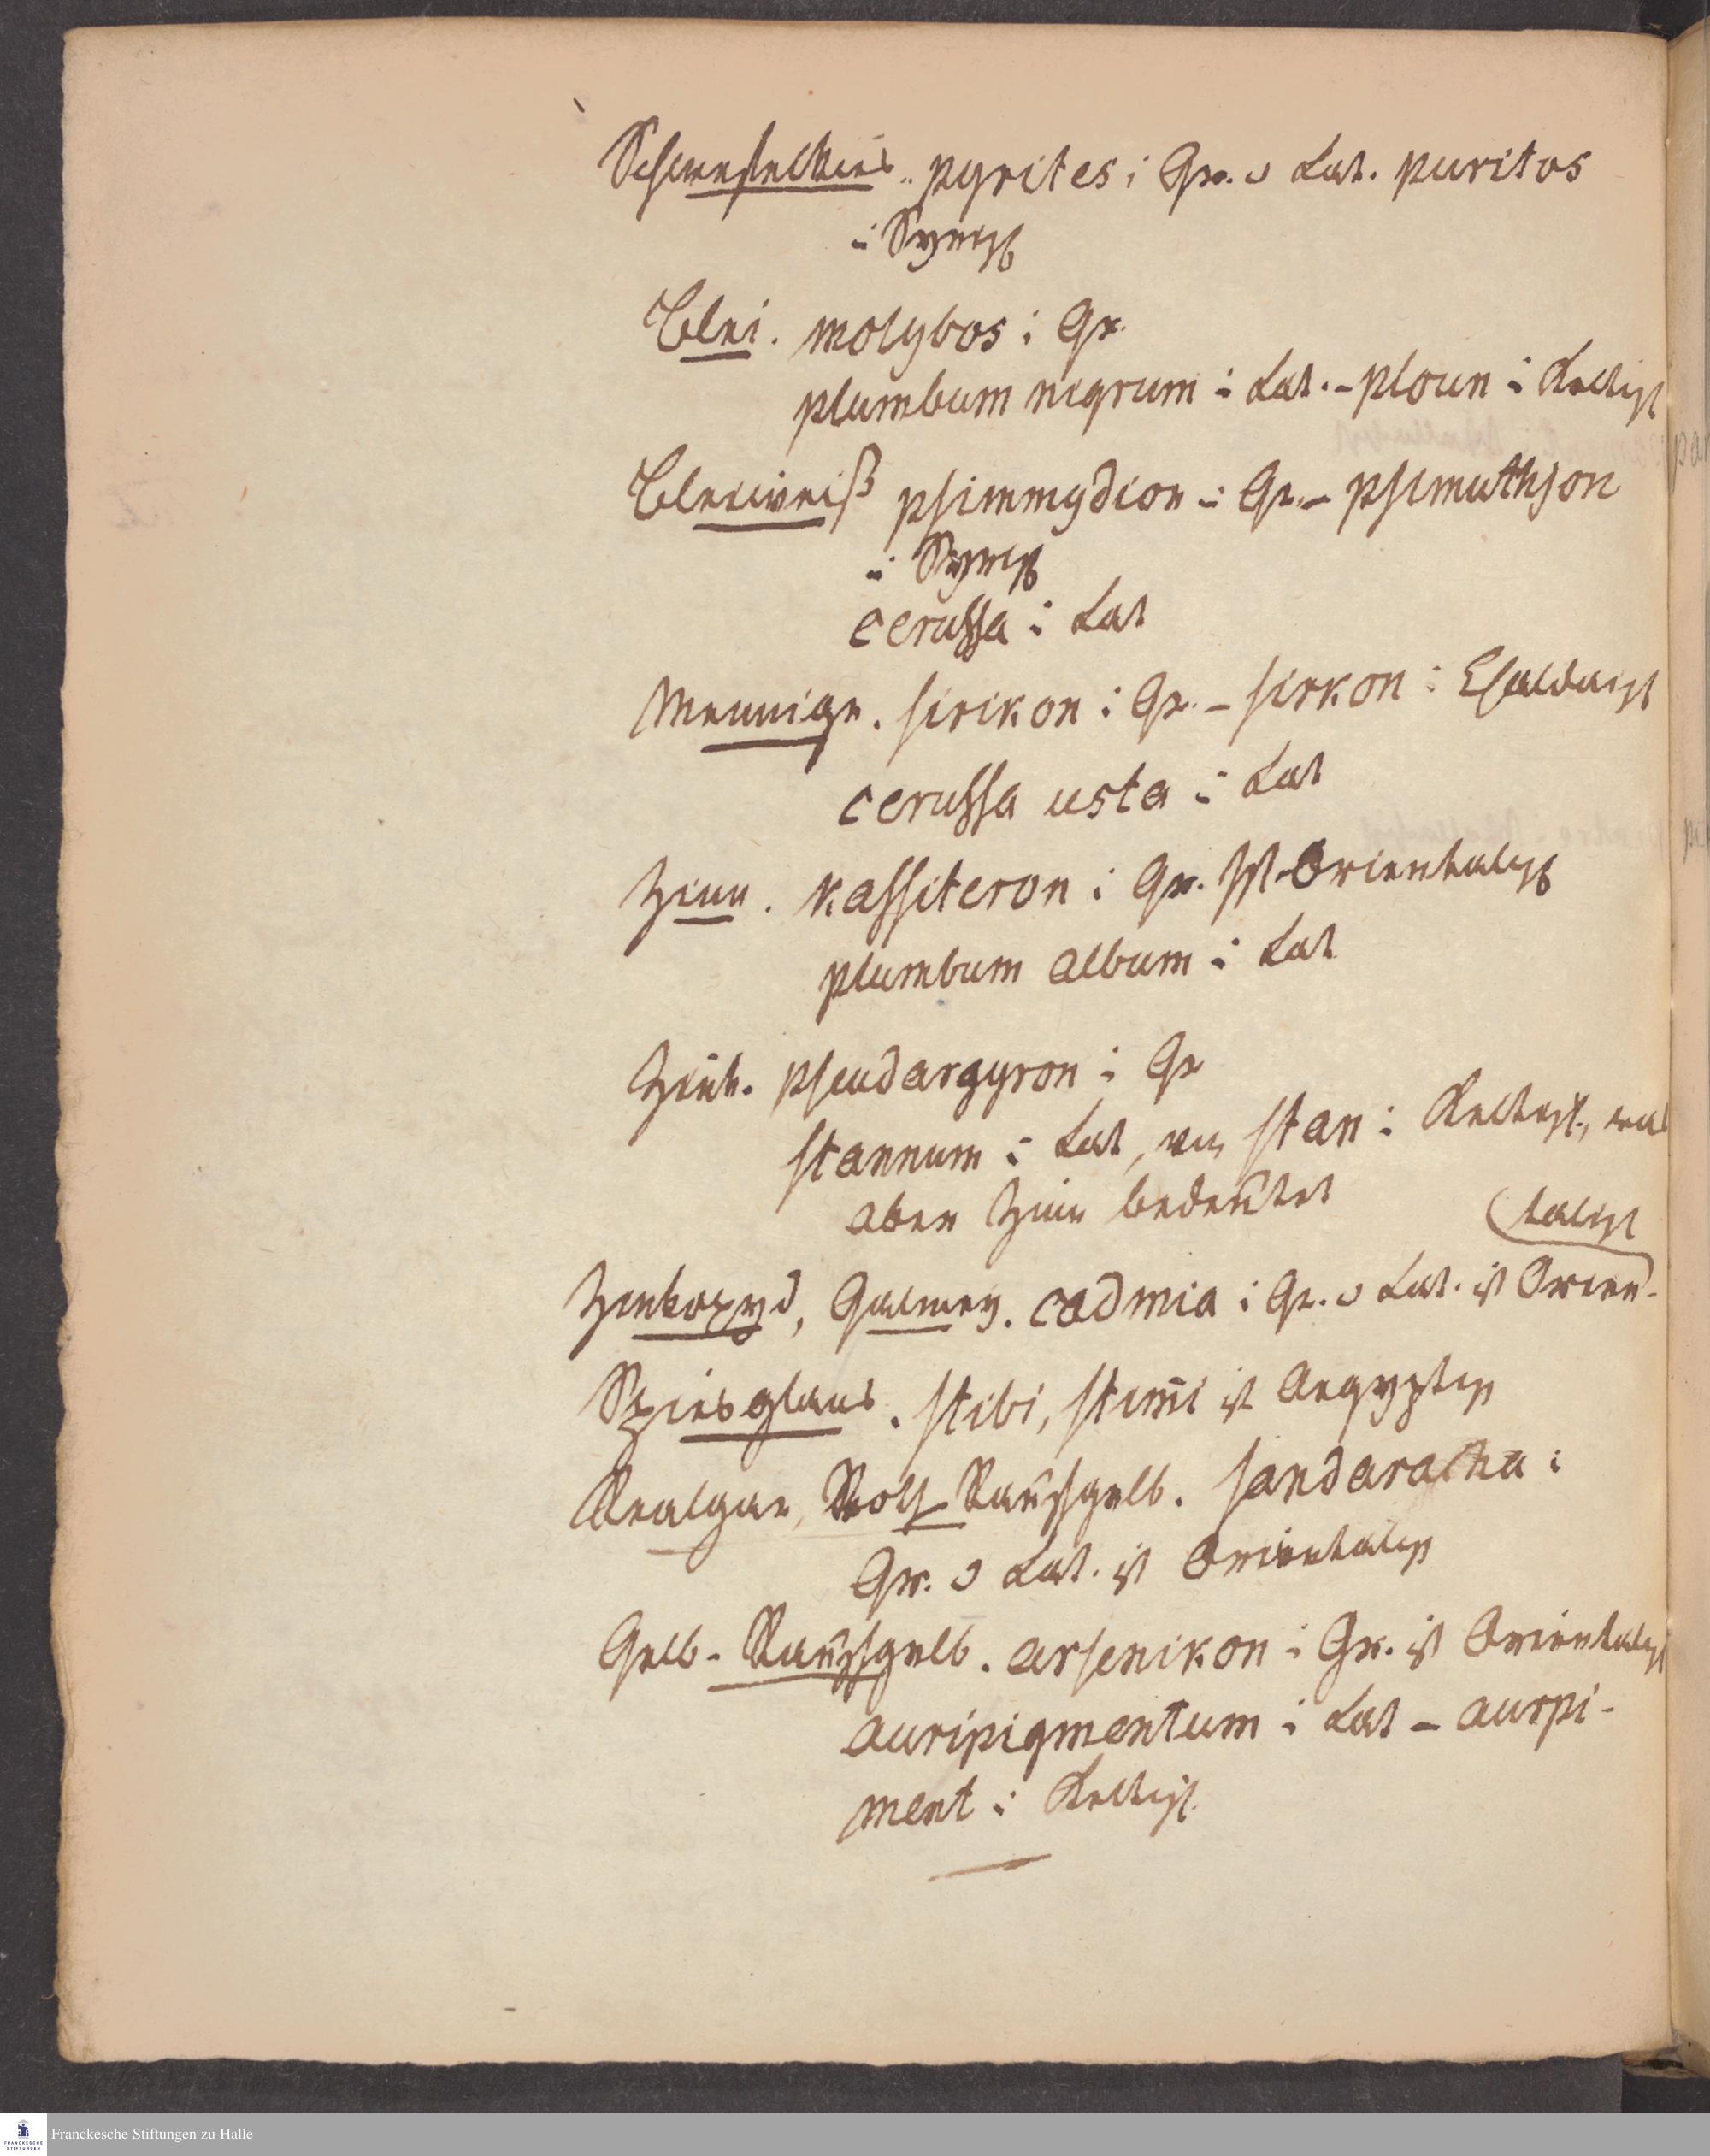 Schwefelkies. pyrites i Gr. u Lat. puritos
i Syrisch
Blei. molybos i Gr.
plumbum nigrum i Lat. - ploun i Keltisch
Bleiweiß psimmydion i Gr. - psimuthjon
i Syrisch
cerussa i Lat
Mennige. sirikon i Gr. - sirkon i Chaldaisch
cerussa usta i Lat
Zinn. kassiteron i Gr. ist Orientalisch
plumbum album i Lat
Zink. pseudargyron i Gr
stannum i Lat, von stan i Keltisch, was
aber Zinn bedeutet
(talisch
Zinkoxyd, Galmey. cadmia i Gr. u Lat. ist Orien-
Spiesglaus. stibi, stim̄i ist Aegyptisch
Realgar, Roth Rauschgelb. sandaracha i
Gr. u Lat. ist Orientalisch
Gelb-Rauschgelb. arsenikon i Gr. ist Orientalisch
auripigmentum i Lat - aurpi-
ment i Keltisch.
Franckesche Stiftungen zu Halle
FRANCKESCHE
STIFTUNGEN